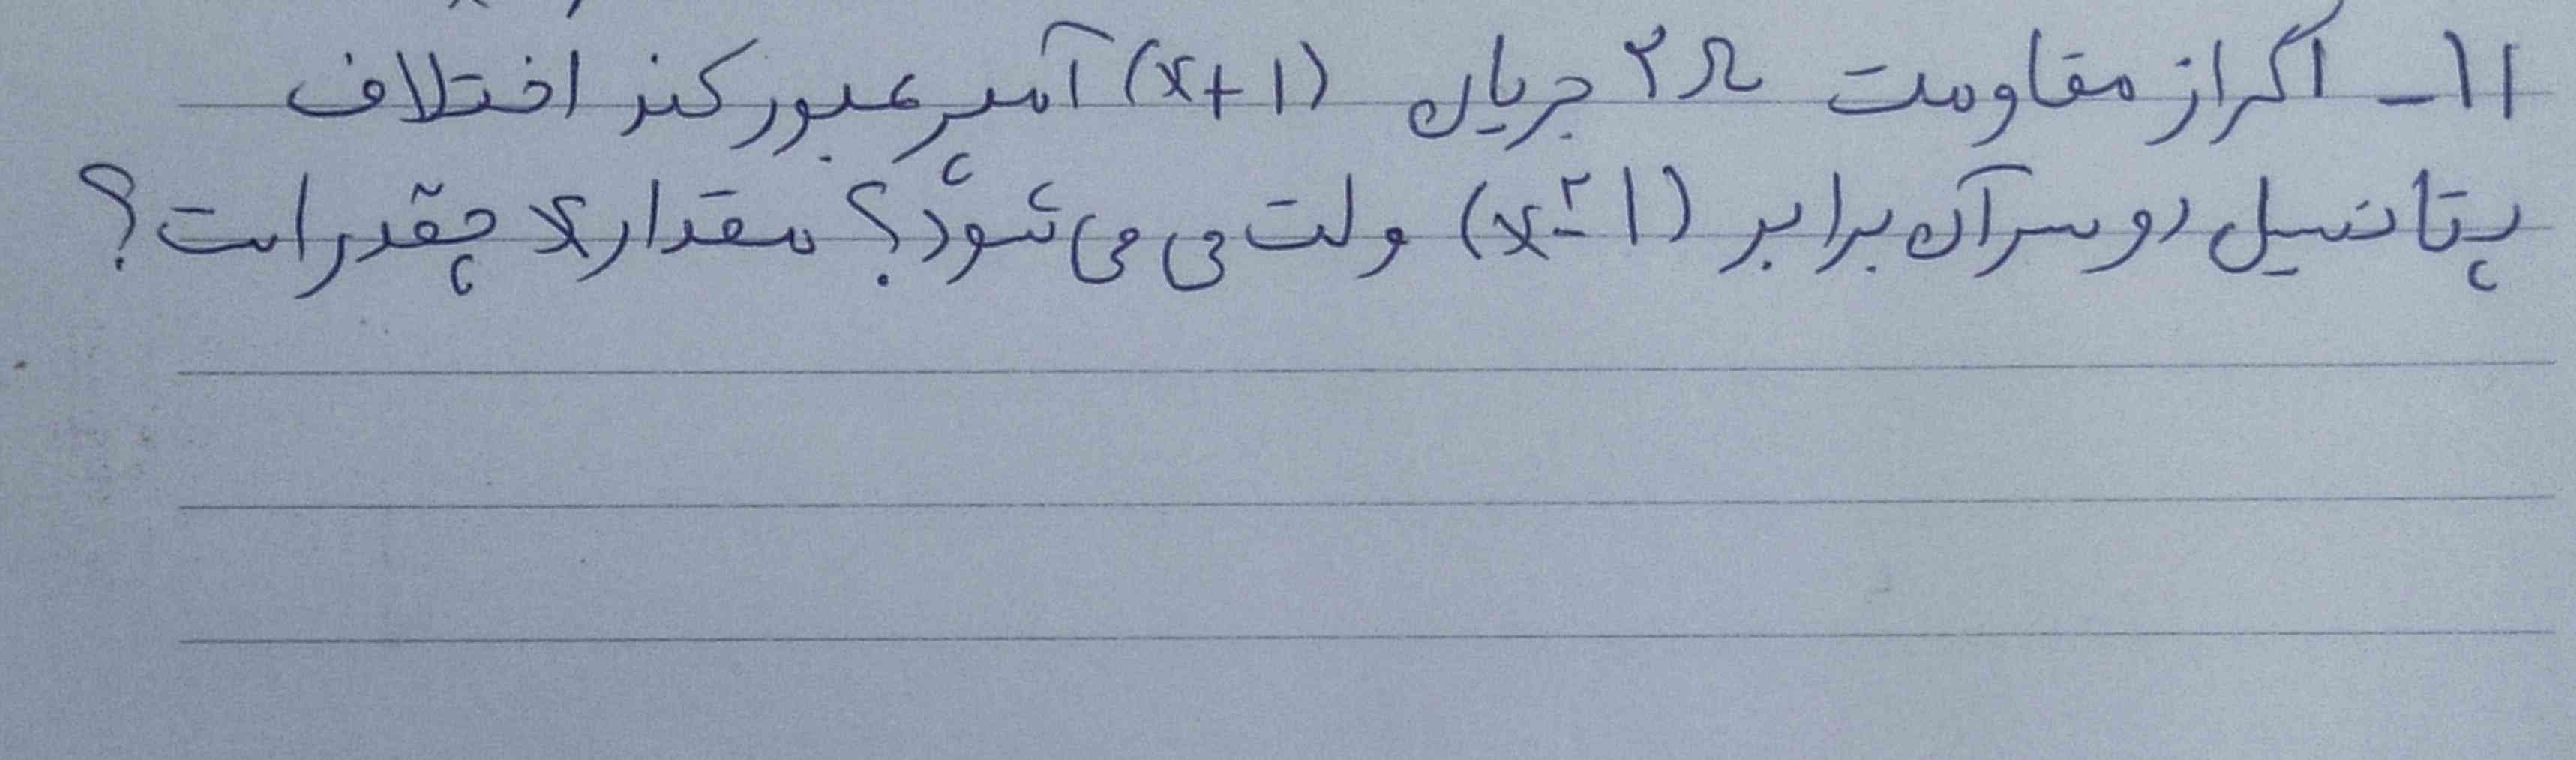 ۱۱- اگر از مقاومت ۲Ω جریان (x+۱) آمپر عبور کند اختلاف
پتانسیل دو سر آن برابر (x²-۱) ولت می می شود؟ مقدار x چقدر است؟